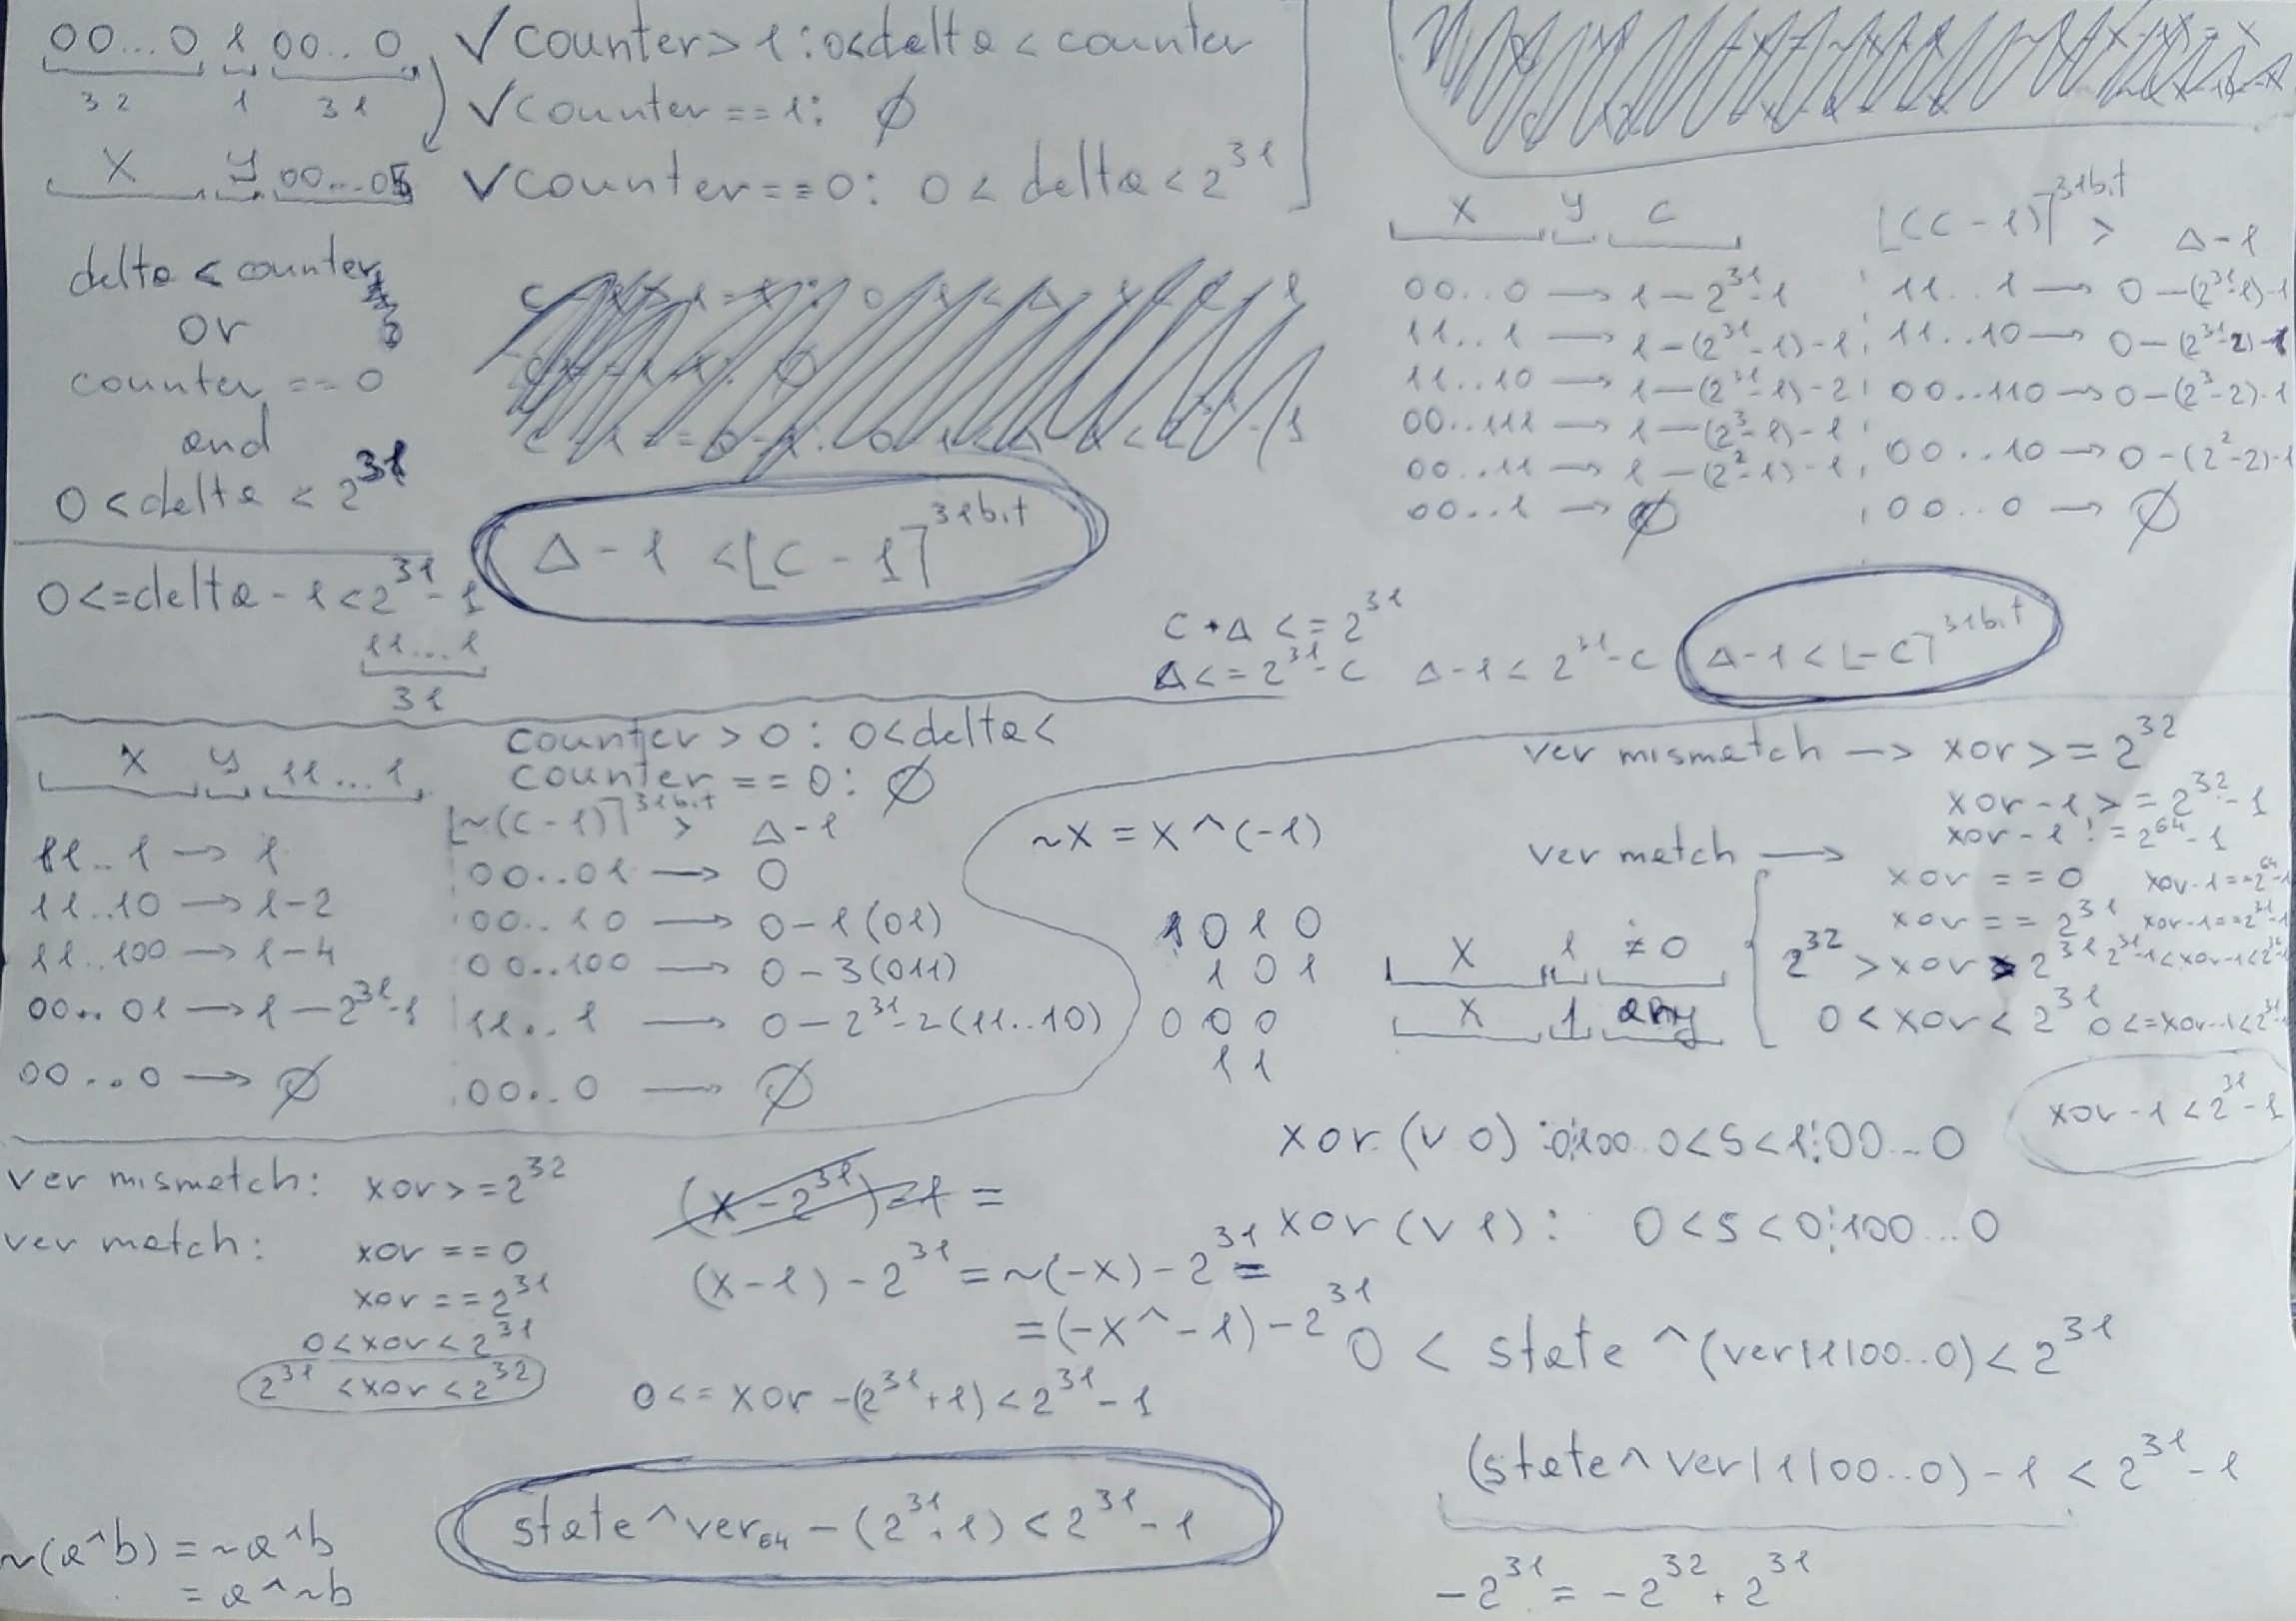 00...0 1 00..0
32 1 31
X y 00...0
delta < counter
or
counter == 0
and
0 < delta < 2^31
√ counter > 1 : 0<delta < counter
√ counter == 1: ∅
√ counter == 0: 0 < delta < 2^31
0 <= delta - 1 < 2^31 - 1
11...1
31
Δ - 1 < ⌊C - 1⌉^31bit
X y C
⌊(C - 1)⌉^31bit > Δ - 1
00..0 → 1 - 2^31-1 11..1 → 0 - (2^31-1)-1
11..1 → 1 - (2^31-1)-1 11..10 → 0 - (2^31-2)-1
11..10 → 1 - (2^31-1)-2 00..110 → 0 - (2^3-2)-1
00..111 → 1 - (2^3-1)-1
00..11 → 1 - (2^2-1)-1 00..10 → 0 - (2^2-2)-1
00..1 → ∅ 00..0 → ∅
C + Δ <= 2^31
Δ <= 2^31 - C Δ - 1 < 2^31 - C Δ - 1 < ⌊-C⌉^31bit
X y 11...1
counter > 0 : 0 < delta <
counter == 0: ∅
⌊~(C - 1)⌉^31bit > Δ - 1
11..1 → 1 00..01 → 0
11..10 → 1-2 00..10 → 0 - 1 (01)
11..100 → 1-4 00..100 → 0 - 3 (011)
00..01 → 1 - 2^31-1 11..1 → 0 - 2^31-2 (11..10)
00...0 → ∅ 00..0 → ∅
~X = X ^ (-1)
1010
101
000
11
ver mismatch → xor >= 2^32
xor - 1 >= 2^32 - 1
xor - 1 != 2^64 - 1
ver match →
xor == 0 xor-1 == 2^64-1
xor == 2^31 xor-1 == 2^31-1
2^32 > xor > 2^31 2^31-1 < xor-1 < 2^32-1
0 < xor < 2^31 0 <= xor-1 < 2^31-1
X 1 ≠ 0
X 1 any
xor - 1 < 2^31 - 1
xor (v 0) : 0:100..0 < S < 1:00...0
xor (v 1) : 0 < S < 0:100...0
ver mismatch: xor >= 2^32
ver match: xor == 0
xor == 2^31
0 < xor < 2^31
2^31 < xor < 2^32
(x - 2^31) - 1 =
(x - 1) - 2^31 = ~(-x) - 2^31 =
= (-x ^ -1) - 2^31
0 <= xor - (2^31 + 1) < 2^31 - 1
0 < state ^ (ver|1|00..0) < 2^31
(state ^ ver|1|00..0) - 1 < 2^31 - 1
state ^ ver64 - (2^31 + 1) < 2^31 - 1
-2^31 = -2^32 + 2^31
~(a^b) = ~a^b
= a^~b